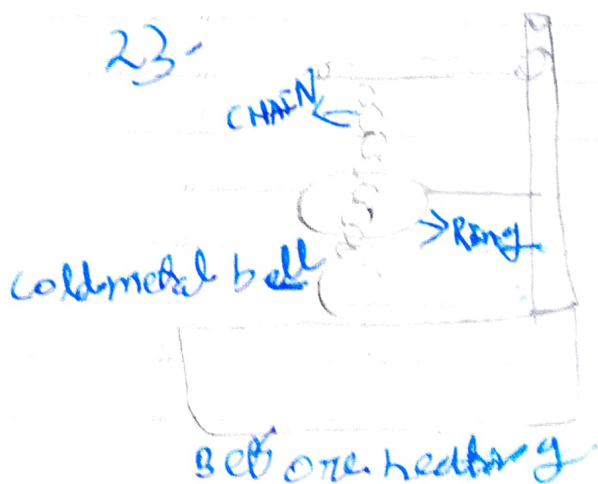 23-
CHAIN
Ring
cold metal ball
Before heating